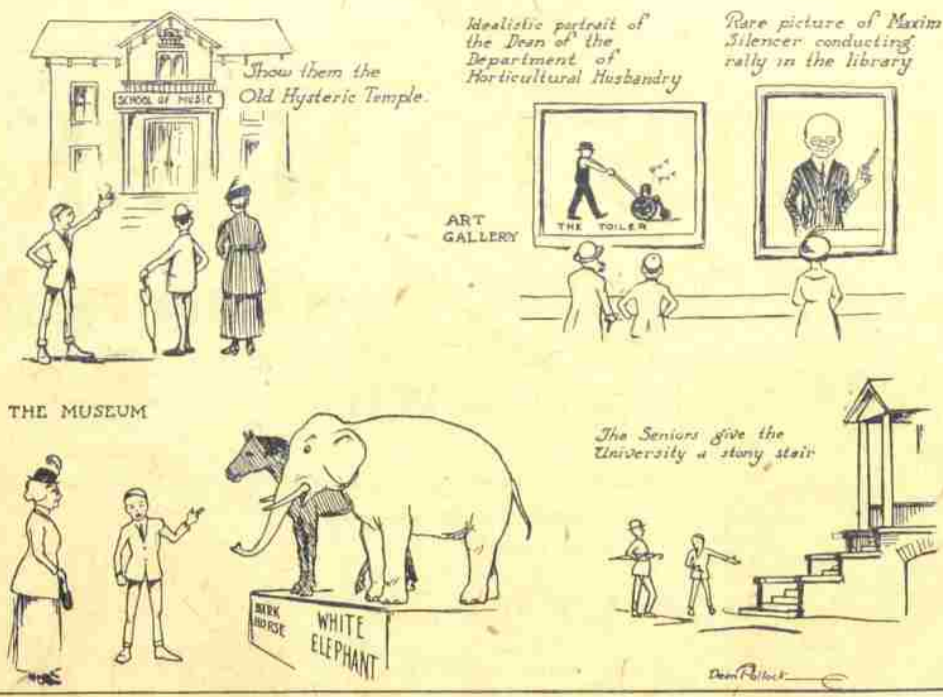 Show them the
Old Hysteric Temple.
SCHOOL OF MUSIC
Idealistic portrait of
the Dean of the
Department of
Horticultural Husbandry
Rare picture of Maxim
Silencer conducting
rally in the library
ART
GALLERY
PUT
PUT
THE TOILER
THE MUSEUM
DARK
HORSE
WHITE
ELEPHANT
The Seniors give the
University a stony stair
Dean Pollock